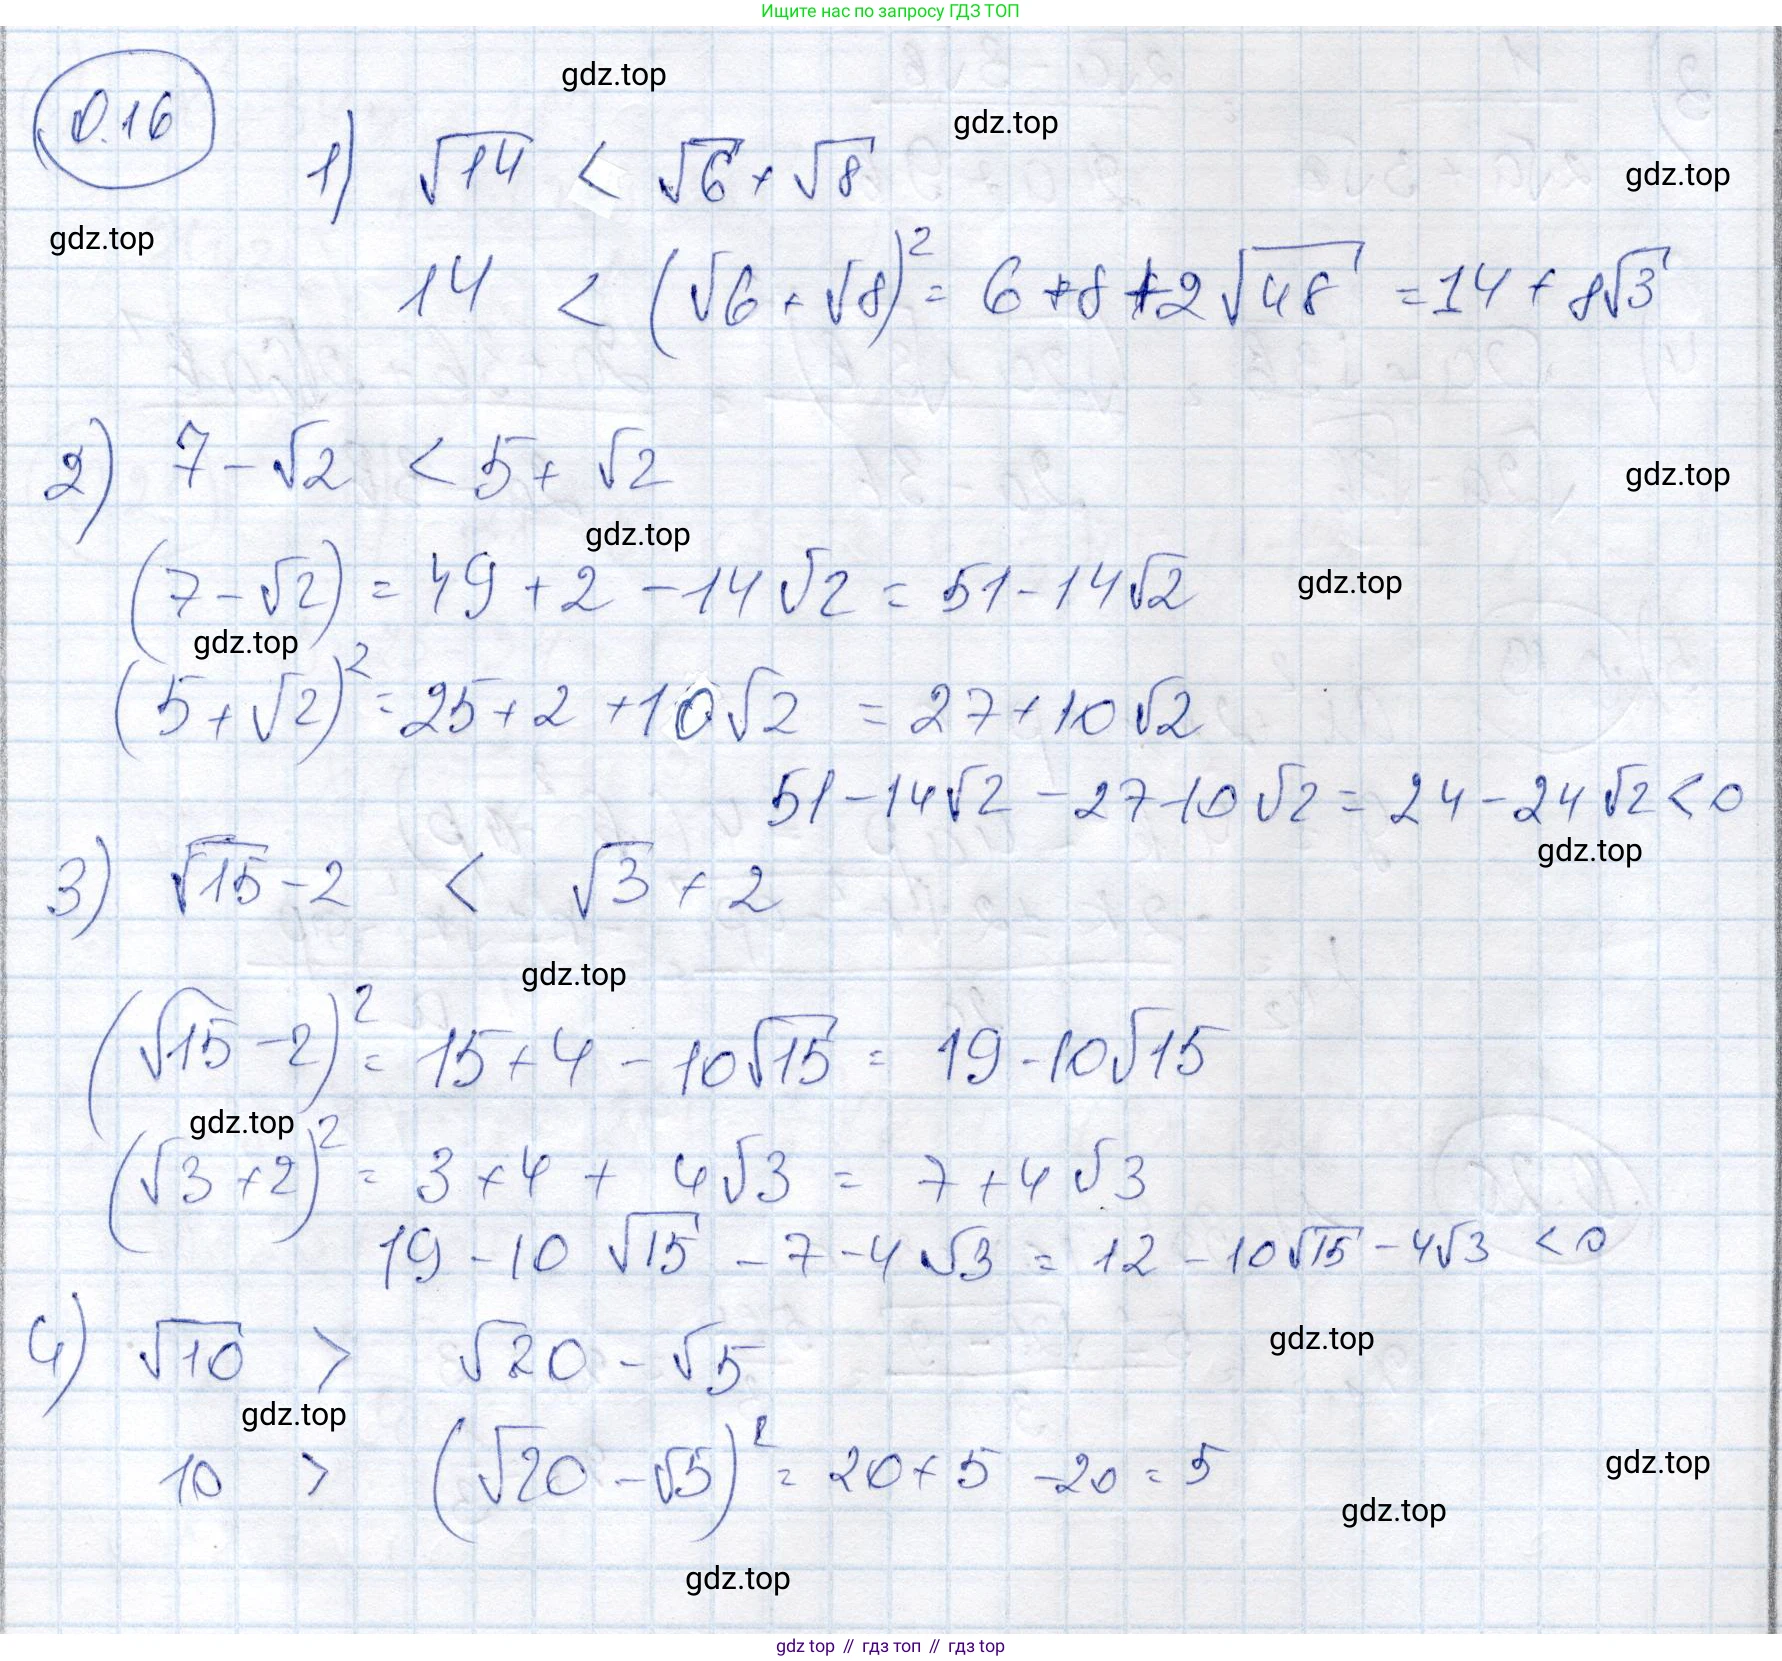 Ищите нас по запросу ГДЗ ТОП
0.16
gdz.top
gdz.top
gdz.top
gdz.top
1) √14 < √6 + √8
14 < (√6 + √8)² = 6 + 8 + 2√48 = 14 + 8√3
2) 7 - √2 < 5 + √2
gdz.top
gdz.top
(7 - √2) = 49 + 2 - 14√2 = 51 - 14√2
gdz.top
gdz.top
(5 + √2)² = 25 + 2 + 10√2 = 27 + 10√2
51 - 14√2 - 27 - 10√2 = 24 - 24√2 < 0
gdz.top
3) √15 - 2 < √3 + 2
gdz.top
(√15 - 2)² = 15 + 4 - 10√15 = 19 - 10√15
gdz.top
(√3 + 2)² = 3 + 4 + 4√3 = 7 + 4√3
19 - 10√15 - 7 - 4√3 = 12 - 10√15 - 4√3 < 0
4) √10 > √20 - √5
gdz.top
gdz.top
10 > (√20 - √5)² = 20 + 5 - 20 = 5
gdz.top
gdz.top
gdz.top
gdz top // гдз топ // гдз top